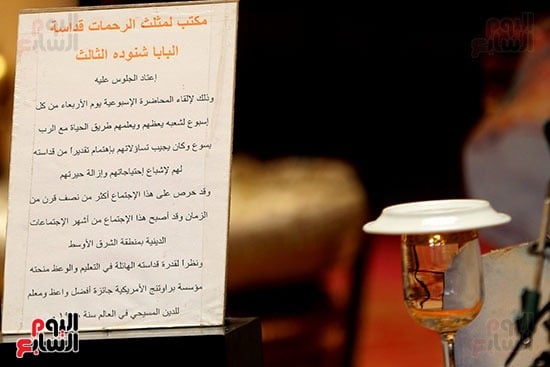 مكتب لمثلث الرحمات قداسة
البابا شنوده الثالث
إعتاد الجلوس عليه
وذلك لإلقاء المحاضرة الإسبوعية يوم الأربعاء من كل
إسبوع لشعبه يعظهم ويعلمهم طريق الحياة مع الرب
يسوع وكان يجيب تساؤلاتهم بإهتمام تقديراً من قداسته
لهم لإشباع إحتياجاتهم وإزالة حيرتهم
وقد حرص على هذا الإجتماع أكثر من نصف قرن من
الزمان وقد أصبح هذا الإجتماع من أشهر الإجتماعات
الدينية بمنطقة الشرق الأوسط
ونظراً لقدرة قداسته الهائلة في التعليم والوعظ منحته
مؤسسة براوننج الأمريكية جائزة أفضل واعظ ومعلم
للدين المسيحي في العالم سنة
اليوم السابع
اليوم السابع
اليوم السابع
اليوم السابع